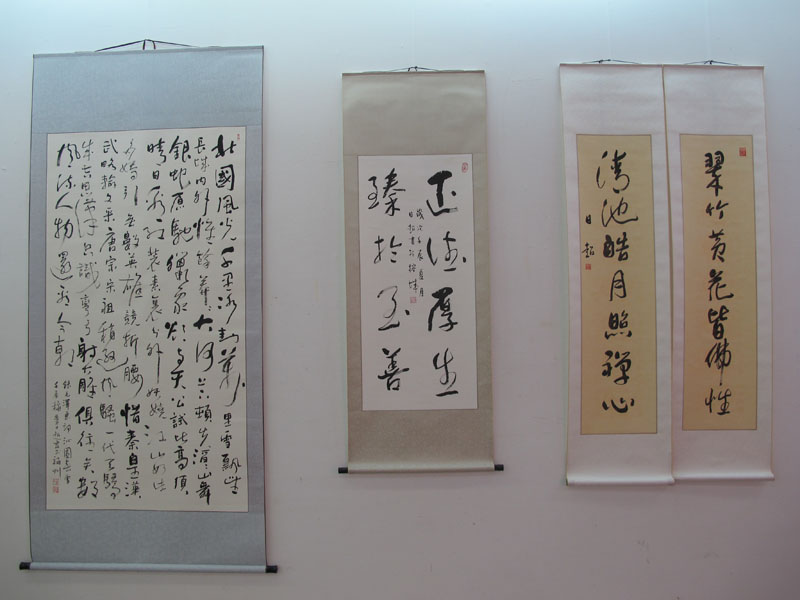 翠竹黄花皆佛性
清池皓月照禪心
正德厚生
臻於至善
北國風光千里冰封萬里雪飄望
長城内外惟餘莽莽大河上下頓失滔滔山舞
銀蛇原馳蠟象欲與天公試比高須
晴日看红装素裹分外妖娆江山如此
多嬌引無數英雄競折腰惜秦皇漢
武略輸文采唐宗宋祖稍遜風騷一代天驕
成吉思汗只識彎弓射大雕俱往矣數
風流人物還看今朝
錄毛澤東沁園春雪